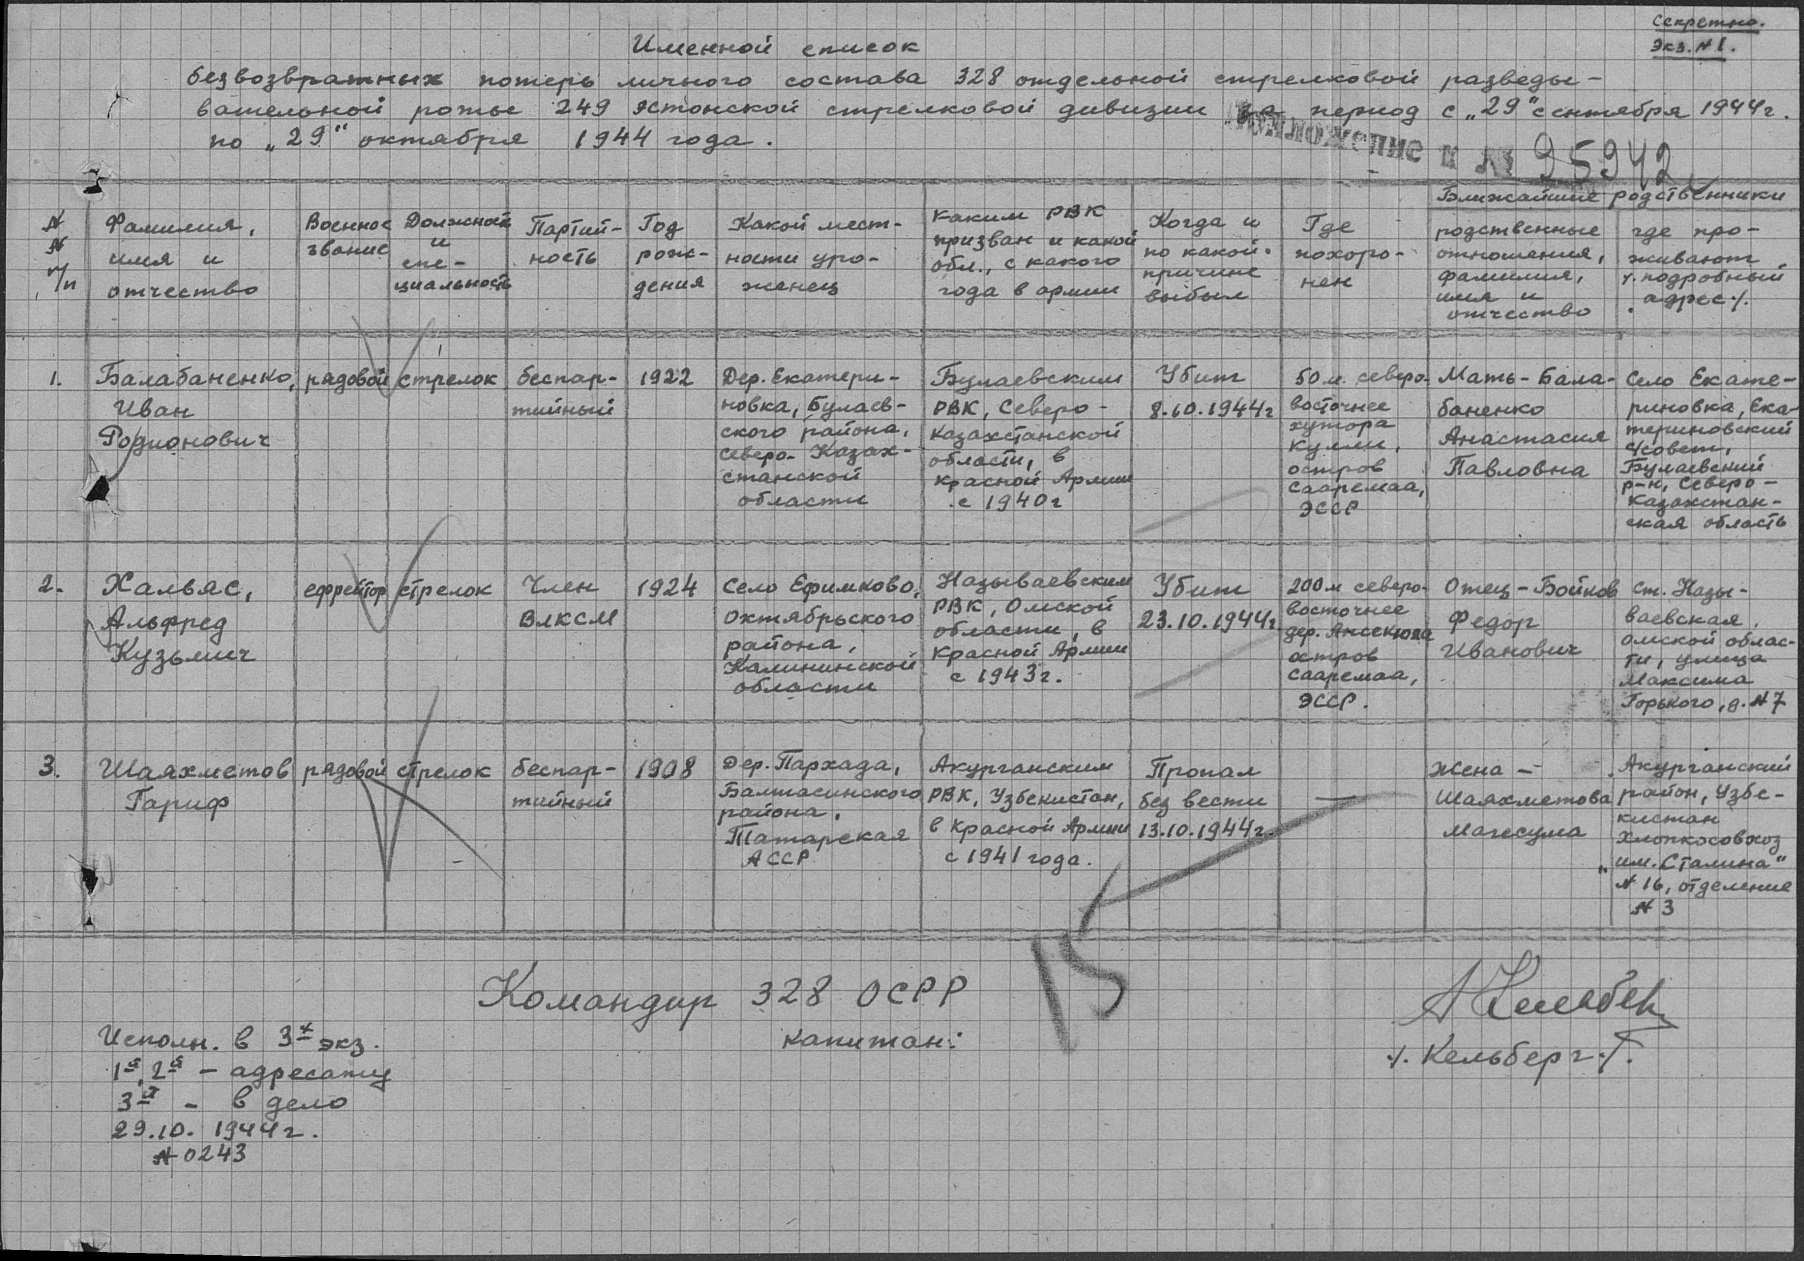 Секретно.
Экз. №1.
Именной список
безвозвратных потерь личного состава 328 отдельной стрелковой разведы-
вательной роты 249 эстонской стрелковой дивизии за период с „29" сентября 1944г.
по „29" октября 1944 года.
Приложение к № 95942
№
№
п/п
Фамилия,
имя и
отчество
Военное
звание
Должность
и
спе-
циальность
Партий-
ность
Год
рож-
дения
Какой мест-
ности уро-
женец
Каким РВК
призван и какой
обл., с какого
года в армии
Когда и
по какой
причине
выбыл
Где
похоро-
нен
Ближайшие родственники
родственные
отношения,
фамилия,
имя и
отчество
где про-
живают
/. подробный
адрес ./.
1.
Балабаненко,
Иван
Родионович
рядовой
стрелок
беспар-
тийный
1922
Дер. Екатери-
новка, Булаев-
ского района,
Северо-Казах-
станской
области
Булаевским
РВК, Северо-
Казахстанской
области, в
Красной Армии
с 1940г
Убит
8.10.1944г
50 м. северо-
восточнее
хутора
Кулли,
остров
Сааремаа,
ЭССР
Мать - Бала-
баненко
Анастасия
Павловна
Село Екате-
риновка, Ека-
териновский
с/совет,
Булаевский
р-н, Северо-
Казахстан-
ская область
2.
Хальяс,
Альфред
Кузьмич
ефрейтор
стрелок
Член
ВЛКСМ
1924
Село Ефимково,
Октябрьского
района,
Калининской
области
Называевским
РВК, Омской
области, в
Красной Армии
с 1943г.
Убит
23.10.1944г.
200 м северо-
восточнее
дер. Ансекюла
остров
Сааремаа,
ЭССР.
Отец - Бойков
Федор
Иванович
ст. Назы-
ваевская,
Омской облас-
ти, улица
Максима
Горького, д. №7
3.
Шаяхметов
Гариф
рядовой
стрелок
беспар-
тийный
1908
Дер. Пархада,
Балтасинского
района,
Татарская
АССР
Акурганским
РВК, Узбекистан,
в Красной Армии
с 1941 года.
Пропал
без вести
13.10.1944г.
—
Жена -
Шаяхметова
Магесума
Акурганский
район, Узбе-
кистан
Хлопкосовхоз
„им. Сталина"
№ 16, отделение
№ 3
15
Командир 328 ОСРР
капитан:
/. Кельберг ./.
Исполн. в 3х экз.
1й, 2й - адресату
3й - в дело
29.10.1944г.
№ 0243